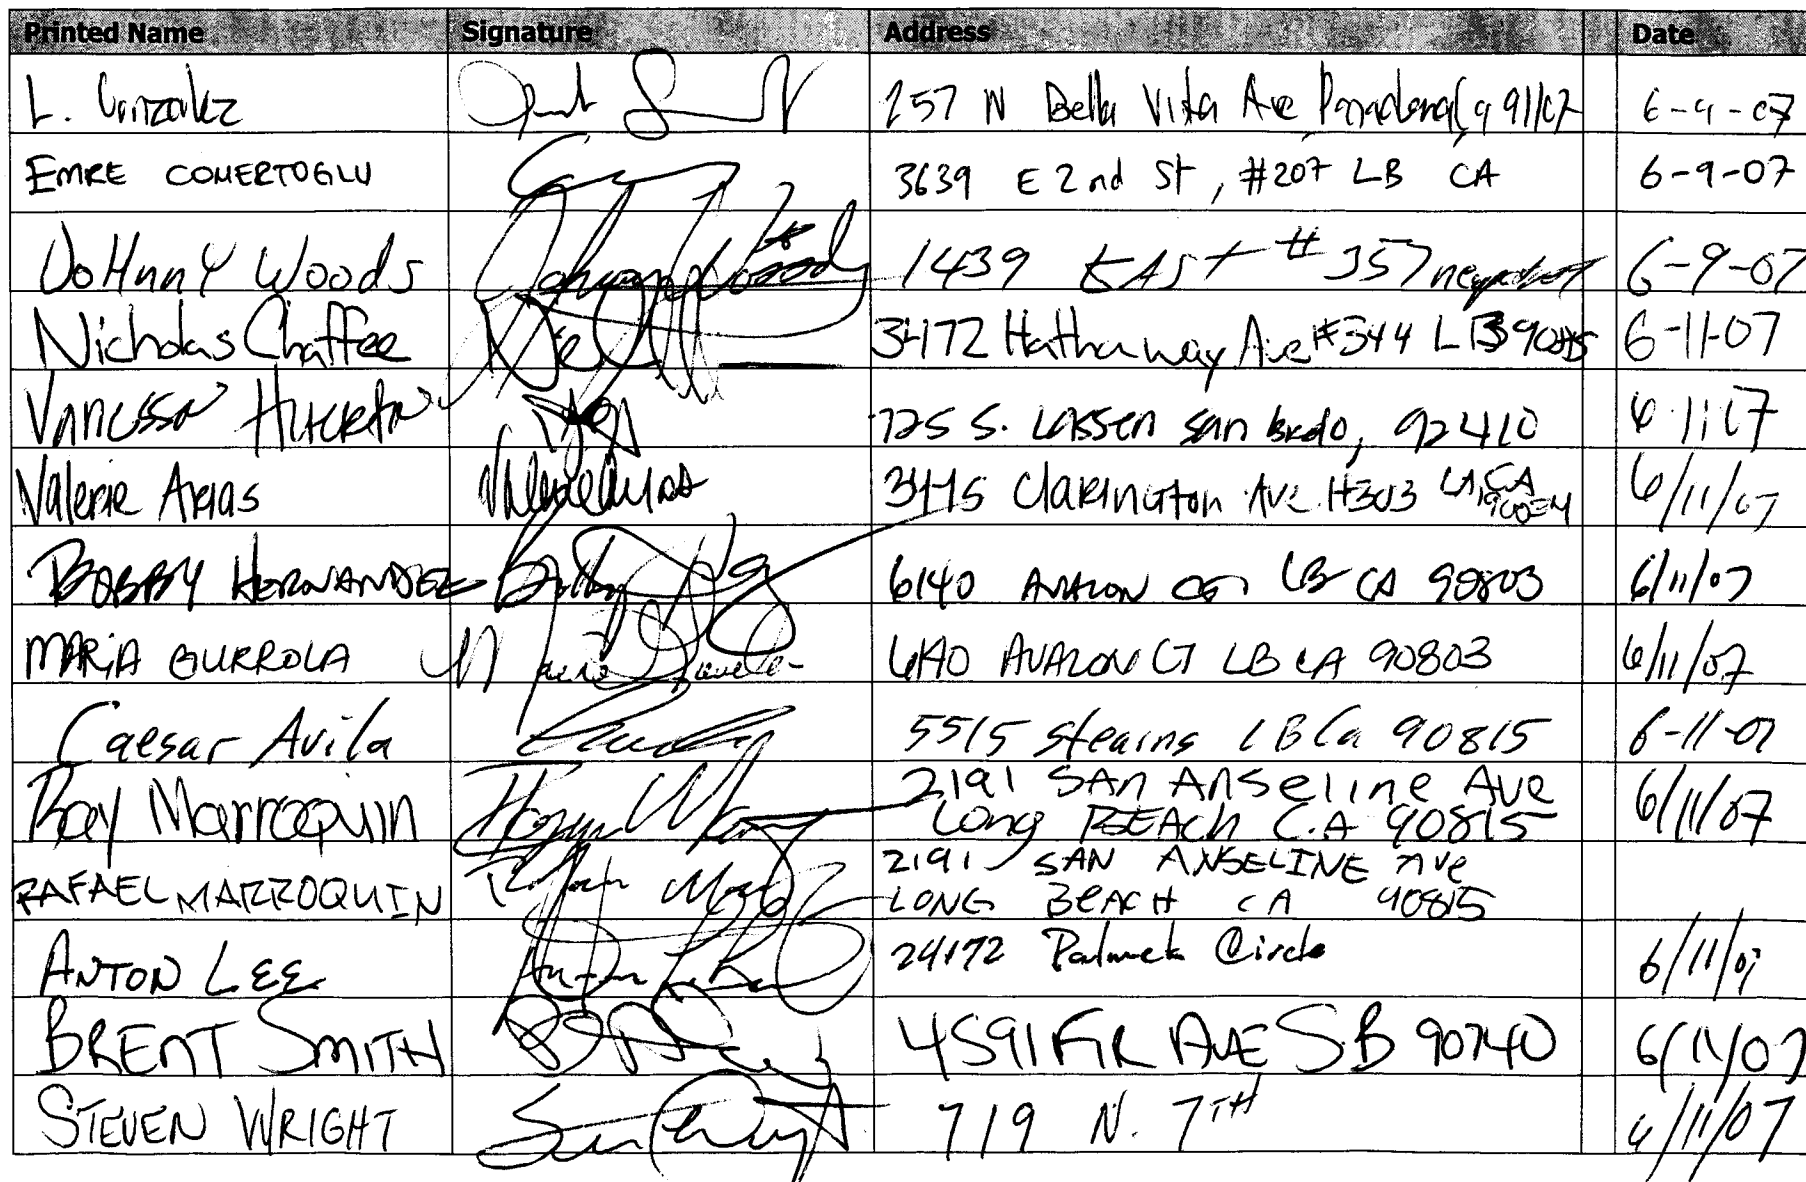 Printed Name Signature Address Date
L. Gonzalez 257 N Bella Vista Ave Pasadena Ca 91107 6-9-07
EMRE COMERTOGLU 3639 E 2nd St, #207 LB CA 6-9-07
JoHnnY Woods Johnny Woods 1439 EAST # 357 6-9-07
Nicholas Chaffee Hathaway Ave #344 LB 6-11-07
Vanessa 725 S. LASSEN San Brdo, 92410 6 11 07
Valerie Arias Valerie Arias Clarington Ave. #303 LA, CA 6/11/07
BOBBY HERNANDEZ 6140 AVALON CT LB CA 90803 6/11/07
MARiA GURROLA Maria 6140 AVALON CT LB CA 90803 6/11/07
Caesar Avila 5515 Stearns LB Ca 90815 6-11-07
Ray Marroquin 2191 SAn AnSeline Ave
Long BEACh C.A 90815 6/11/07
RAFAEL MARROQUIN 2191 SAN ANSELINE Ave
LONG BEACH CA 90815
ANTON LEE 24172 Circle 6/11/07
BRENT SMITH 4591 FIR AVE SB 90740 6/11/07
STEVEN WRIGHT 719 N. 7TH 6/11/07